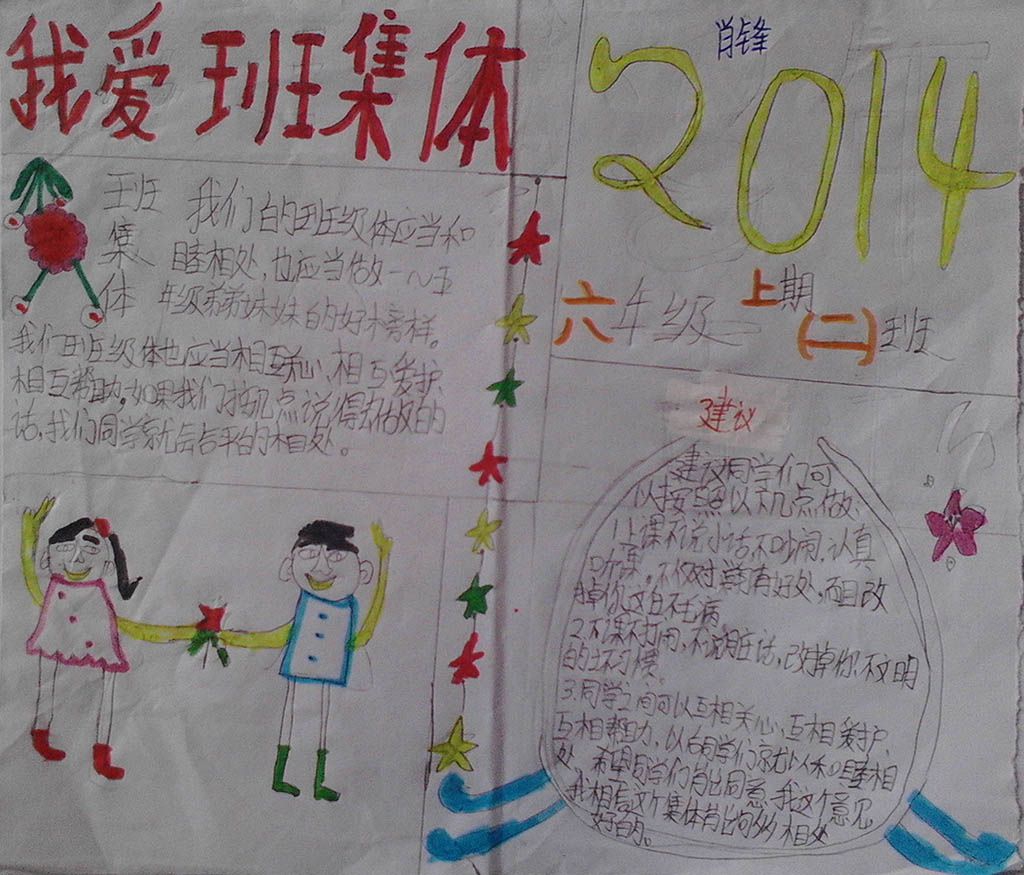 我爱班集体
肖锋
2014
六年级上期(二)班
班集体
我们的班级体应当和
睦相处,也应当做一~五
年级弟弟妹妹的好榜样。
我们班级体也应当相互关心、相互爱护、
相互帮助。如果我们按几点说得去做的
话,我们同学就会公平的相处。
建议
建议同学们可
以按照以下几点做:
1.上课不说小话,不吵闹,认真
听课。不仅对学习有好处,而且改
掉你这白不毛病
2.下课不打闹,不说脏话,改掉你不文明
的坏习惯。
3.同学之间可以互相关心、互相爱护、
互相帮助,以后同学们就以和睦相
处、希望同学们肯定同意、我这个意见
我相信这个集体肯定能够相处
好的。